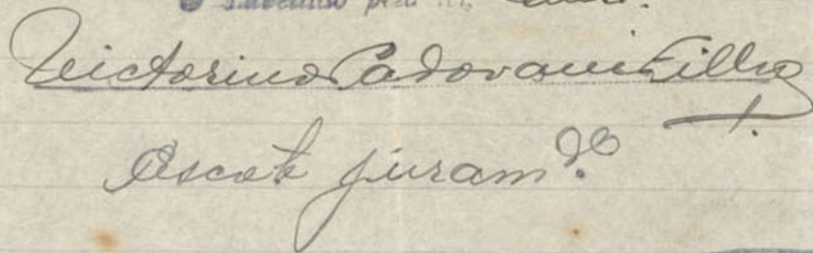 Victorino Padovani Filho
Escte juram.do